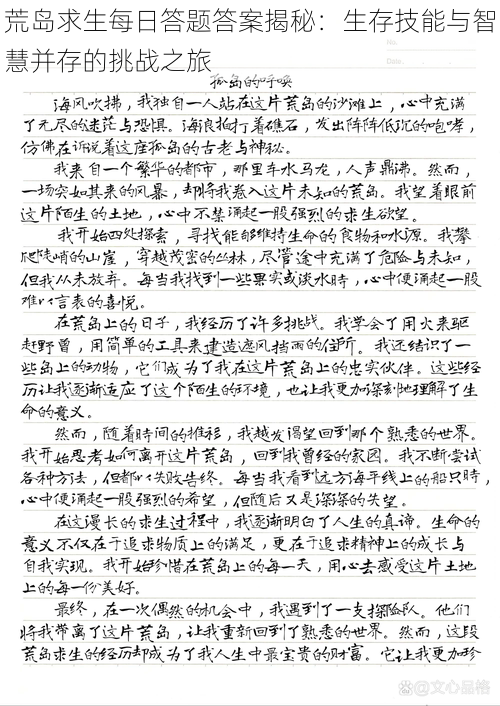 荒岛求生每日答题答案揭秘：生存技能与智
慧并存的挑战之旅
No.
Date
孤岛的呼唤
海风吹拂，我独自一人站在这片荒岛的沙滩上，心中充满
了无尽的迷茫与恐惧。海浪拍打着礁石，发出阵阵低沉的咆哮，
仿佛在诉说着这座孤岛的古老与神秘。
我来自一个繁华的都市，那里车水马龙，人声鼎沸。然而，
一场突如其来的风暴，却将我卷入这片未知的荒岛。我望着眼前
这片陌生的土地，心中不禁涌起一股强烈的求生欲望。
我开始四处探索，寻找能够维持生命的食物和水源。我攀
爬陡峭的山崖，穿越茂密的丛林，尽管途中充满了危险与未知，
但我从未放弃。每当我找到一些果实或淡水时，心中便涌起一股
难以言表的喜悦。
在荒岛上的日子，我经历了许多挑战。我学会了用火来驱
赶野兽，用简单的工具来建造遮风挡雨的住所。我还结识了一
些岛上的动物，它们成为了我在这片荒岛上的忠实伙伴。这些经
历让我逐渐适应了这个陌生的环境，也让我更加深刻地理解了生
命的意义。
然而，随着时间的推移，我越发渴望回到那个熟悉的世界。
我开始思考如何离开这片荒岛，回到我曾经的家园。我不断尝试
各种方法，但都以失败告终。每当我看到远方海平线上的船只时，
心中便涌起一股强烈的希望，但随后又是深深的失望。
在这漫长的求生过程中，我逐渐明白了人生的真谛。生命的
意义不仅在于追求物质上的满足，更在于追求精神上的成长与
自我实现。我开始珍惜在荒岛上的每一天，用心去感受这片土地
上的每一份美好。
最终，在一次偶然的机会中，我遇到了一支探险队。他们
将我带离了这片荒岛，让我重新回到了熟悉的世界。然而，这段
荒岛求生的经历却成为了我人生中最宝贵的财富。它让我更加珍
@文心品格